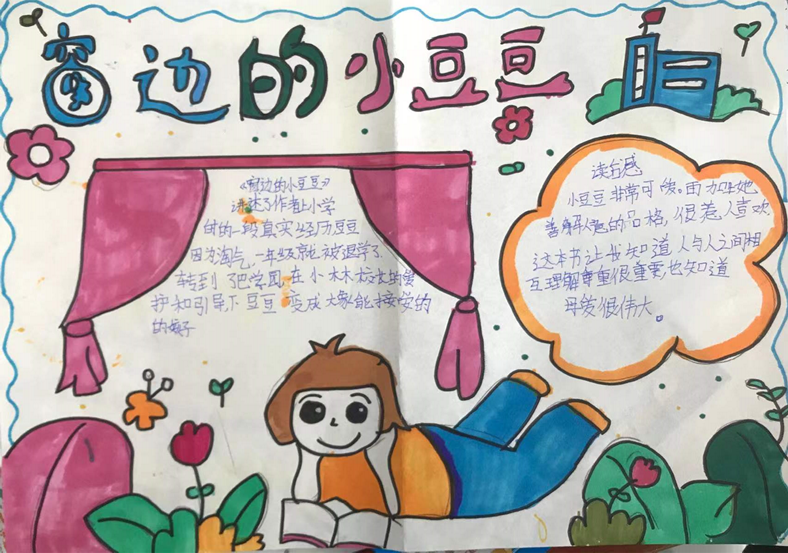 窗边的小豆豆
《窗边的小豆豆》
讲述了作者上小学
时的一段真实经历豆豆
因为淘气,一年级就被退学了
转到了巴学园,在小林校长的爱
护和引导下豆豆变成大家能接受的
的孩子
读书感
小豆豆非常可爱。而加上她
善解人意的品格,很惹人喜欢,
这本书让我知道人与人之间相
互理解尊重很重要,也知道
母爱很伟大。